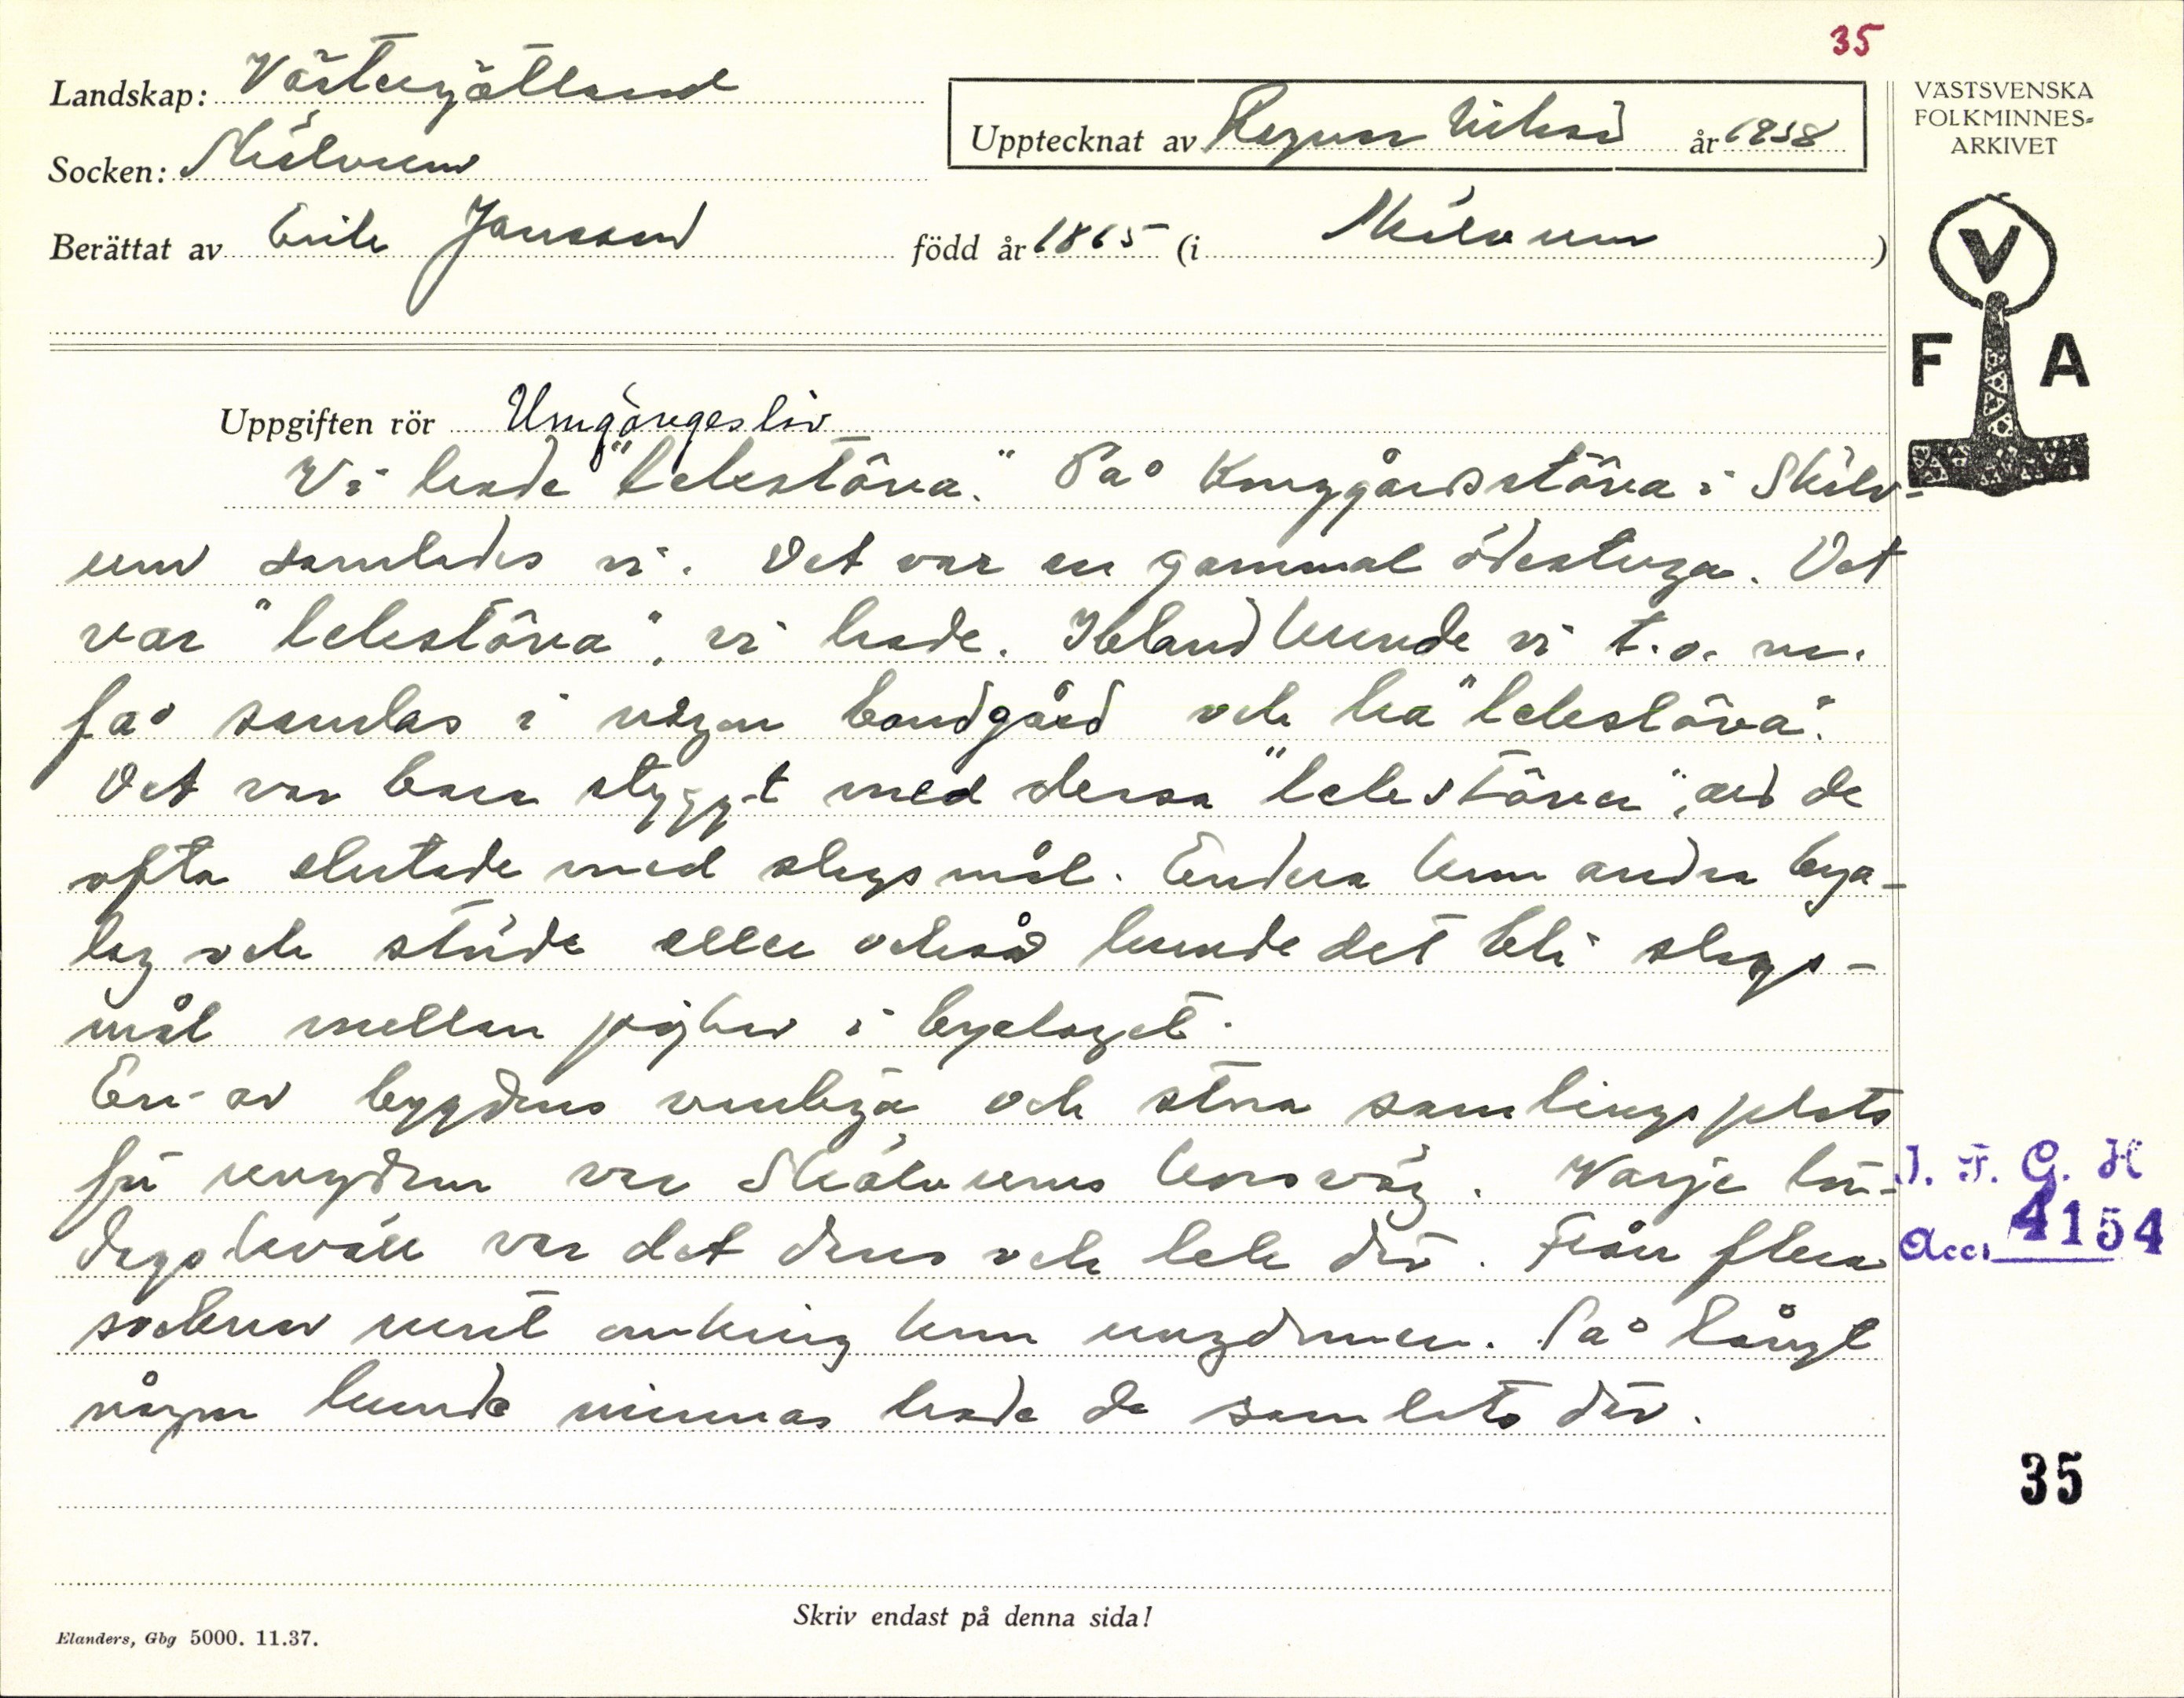 35
Landskap: Västergötland
Upptecknat av Ragnar Nilsson år 1938
VÄSTSVENSKA
FOLKMINNES-
ARKIVET
Socken: Skölvum
Berättat av Erik Jansson född år 1865 (i Skölvum)
V
F A
Uppgiften rör Umgängesliv
Vi hade "lekestôva". På Kruggårdsstôva i Skölv-
um samlades vi. Det var en gammal ödestuga. Det
var "lekestôva", vi hade. Ibland kunde vi t.o.m.
få samlas i någon bondgård och ha "lekestôva".
Det var bara styggt med dessa "lekestôver", att de
ofta slutade med slagsmål. Endera kom andra bya-
lag och störde eller också kunde det bli slags-
mål mellan pojkar i byalaget.
En av bygdens vanliga och stora samlingsplats
för ungdom var Skölvums korsväg. Varje lör-
dagskväll var det dans och lek där. Från flera
socknar runt omkring kom ungdomen. Så långt
någon kunde minnas hade de samlats där.
I. F. G. H
Acc. 4154
35
Skriv endast på denna sida!
Elanders, Gbg 5000. 11.37.